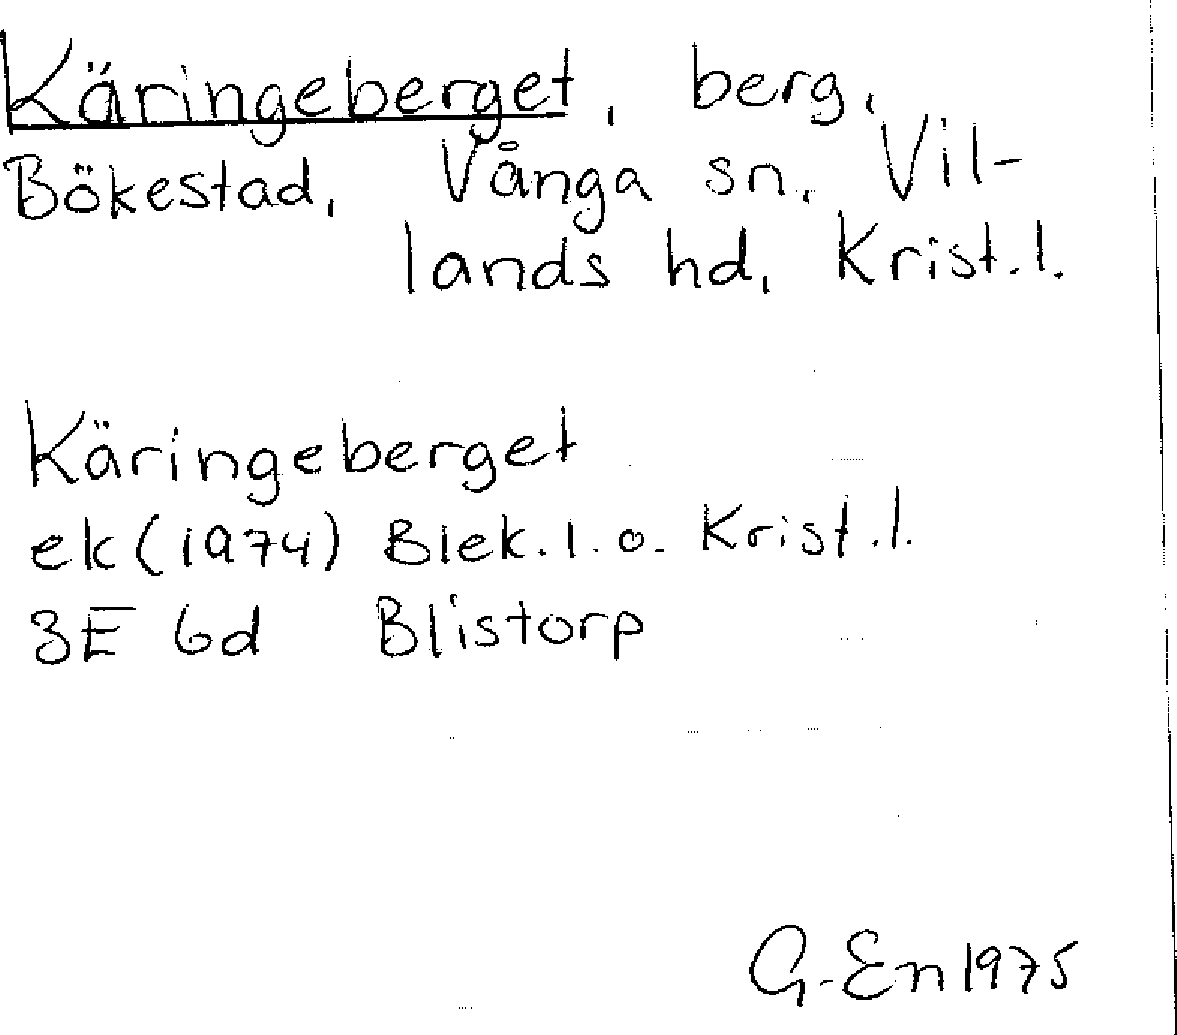 Käringeberget, berg,
Bökestad, Vånga sn, Vil-
lands hd, Krist.l.
Käringeberget
ek (1974) Blek.l. o. Krist.l.
3E 6d Blistorp
G.En 1975